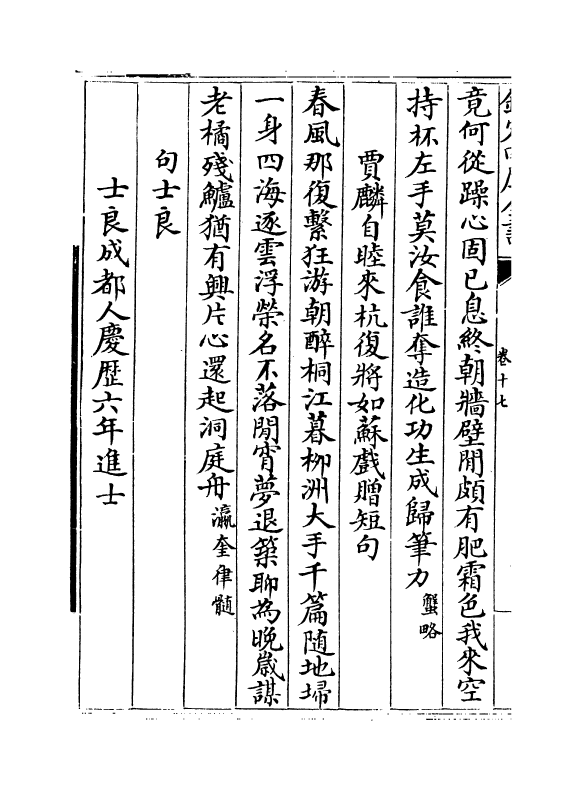 欽定四庫全書
卷十七
竟何從躁心固已息終朝牆壁閒頗有肥霜色我來空
持杯左手莫汝食誰奪造化功生成歸筆力蟹略
賈麟自睦來杭復將如蘇戲贈短句
春風那復繫狂游朝醉桐江暮柳洲大手千篇隨地埽
一身四海逐雲浮榮名不落閒宵夢退築聊為晚歲謀
老橘殘鱸猶有興片心還起洞庭舟瀛奎律髓
句士良
士良成都人慶歴六年進士